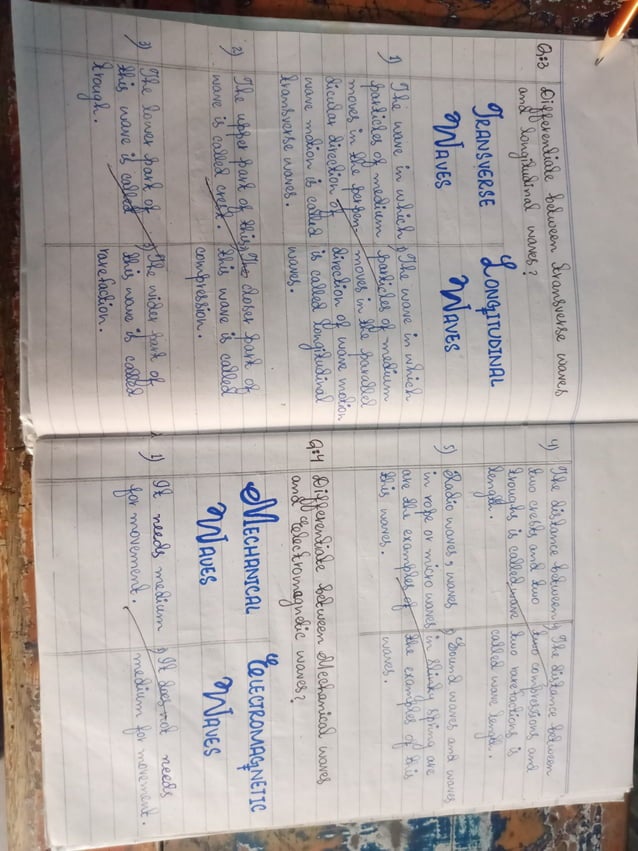 Q:3 Differentiate between transverse waves
and longitudinal waves?
TRANSVERSE
WAVES
LONGITUDINAL
WAVES
1) The wave in which
particles of medium
moves in the perpen-
dicular direction of
wave motion is called
transverse waves.
1) The wave in which
particles of medium
moves in the parallel
direction of wave motion
is called longitudinal
waves.
2) The upper part of this
wave is called crest.
2) The closer part of
this wave is called
compression.
3) The lower part of
this wave is called
trough.
3) The wider part of
this wave is called
rarefaction.
4) The distance between
two crests and two
troughs is called wave
length.
The distance between
two compressions and
two rarefactions is
called wave length.
5) Radio waves, waves
in rope or micro waves
are the examples of
this waves.
5) Sound waves and waves
in slinky spring are
the examples of this
waves.
Q:4 Differentiate between Mechanical waves
and Electromagnetic waves?
MECHANICAL
WAVES
ELECTROMAGNETIC
WAVES
1) It needs medium
for movement.
1) It does not needs
medium for movement.